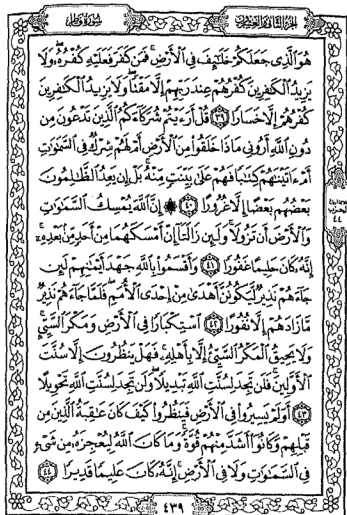 الجزء الثاني والعشرون
سورة فاطر
هُوَ الَّذِي جَعَلَكُمْ خَلَٰٓئِفَ فِي الْأَرْضِ ۚ فَمَن كَفَرَ فَعَلَيْهِ كُفْرُهُ ۖ وَلَا
يَزِيدُ الْكَٰفِرِينَ كُفْرُهُمْ عِندَ رَبِّهِمْ إِلَّا مَقْتًا ۖ وَلَا يَزِيدُ الْكَٰفِرِينَ
كُفْرُهُمْ إِلَّا خَسَارًا ٣٩ قُلْ أَرَءَيْتُمْ شُرَكَآءَكُمُ الَّذِينَ تَدْعُونَ مِن
دُونِ اللَّهِ أَرُونِي مَاذَا خَلَقُوا مِنَ الْأَرْضِ أَمْ لَهُمْ شِرْكٌ فِي السَّمَٰوَٰتِ
أَمْ ءَاتَيْنَٰهُمْ كِتَٰبًا فَهُمْ عَلَىٰ بَيِّنَتٍ مِّنْهُ ۚ بَلْ إِن يَعِدُ الظَّٰلِمُونَ
بَعْضُهُم بَعْضًا إِلَّا غُرُورًا ٤٠ ۞ إِنَّ اللَّهَ يُمْسِكُ السَّمَٰوَٰتِ
وَالْأَرْضَ أَن تَزُولَا ۚ وَلَئِن زَالَتَآ إِنْ أَمْسَكَهُمَا مِنْ أَحَدٍ مِّن بَعْدِهِ ۚ
إِنَّهُ كَانَ حَلِيمًا غَفُورًا ٤١ وَأَقْسَمُوا بِاللَّهِ جَهْدَ أَيْمَٰنِهِمْ لَئِن
جَآءَهُمْ نَذِيرٌ لَّيَكُونُنَّ أَهْدَىٰ مِنْ إِحْدَى الْأُمَمِ ۖ فَلَمَّا جَآءَهُمْ نَذِيرٌ
مَّا زَادَهُمْ إِلَّا نُفُورًا ٤٢ اسْتِكْبَارًا فِي الْأَرْضِ وَمَكْرَ السَّيِّئِ ۚ
وَلَا يَحِيقُ الْمَكْرُ السَّيِّئُ إِلَّا بِأَهْلِهِ ۚ فَهَلْ يَنظُرُونَ إِلَّا سُنَّتَ
الْأَوَّلِينَ ۚ فَلَن تَجِدَ لِسُنَّتِ اللَّهِ تَبْدِيلًا ۖ وَلَن تَجِدَ لِسُنَّتِ اللَّهِ تَحْوِيلًا
٤٣ أَوَلَمْ يَسِيرُوا فِي الْأَرْضِ فَيَنظُرُوا كَيْفَ كَانَ عَٰقِبَةُ الَّذِينَ مِن
قَبْلِهِمْ وَكَانُوٓا أَشَدَّ مِنْهُمْ قُوَّةً ۚ وَمَا كَانَ اللَّهُ لِيُعْجِزَهُ مِن شَيْءٍ
فِي السَّمَٰوَٰتِ وَلَا فِي الْأَرْضِ ۚ إِنَّهُ كَانَ عَلِيمًا قَدِيرًا ٤٤
الحزب
٤٤
٤٣٩